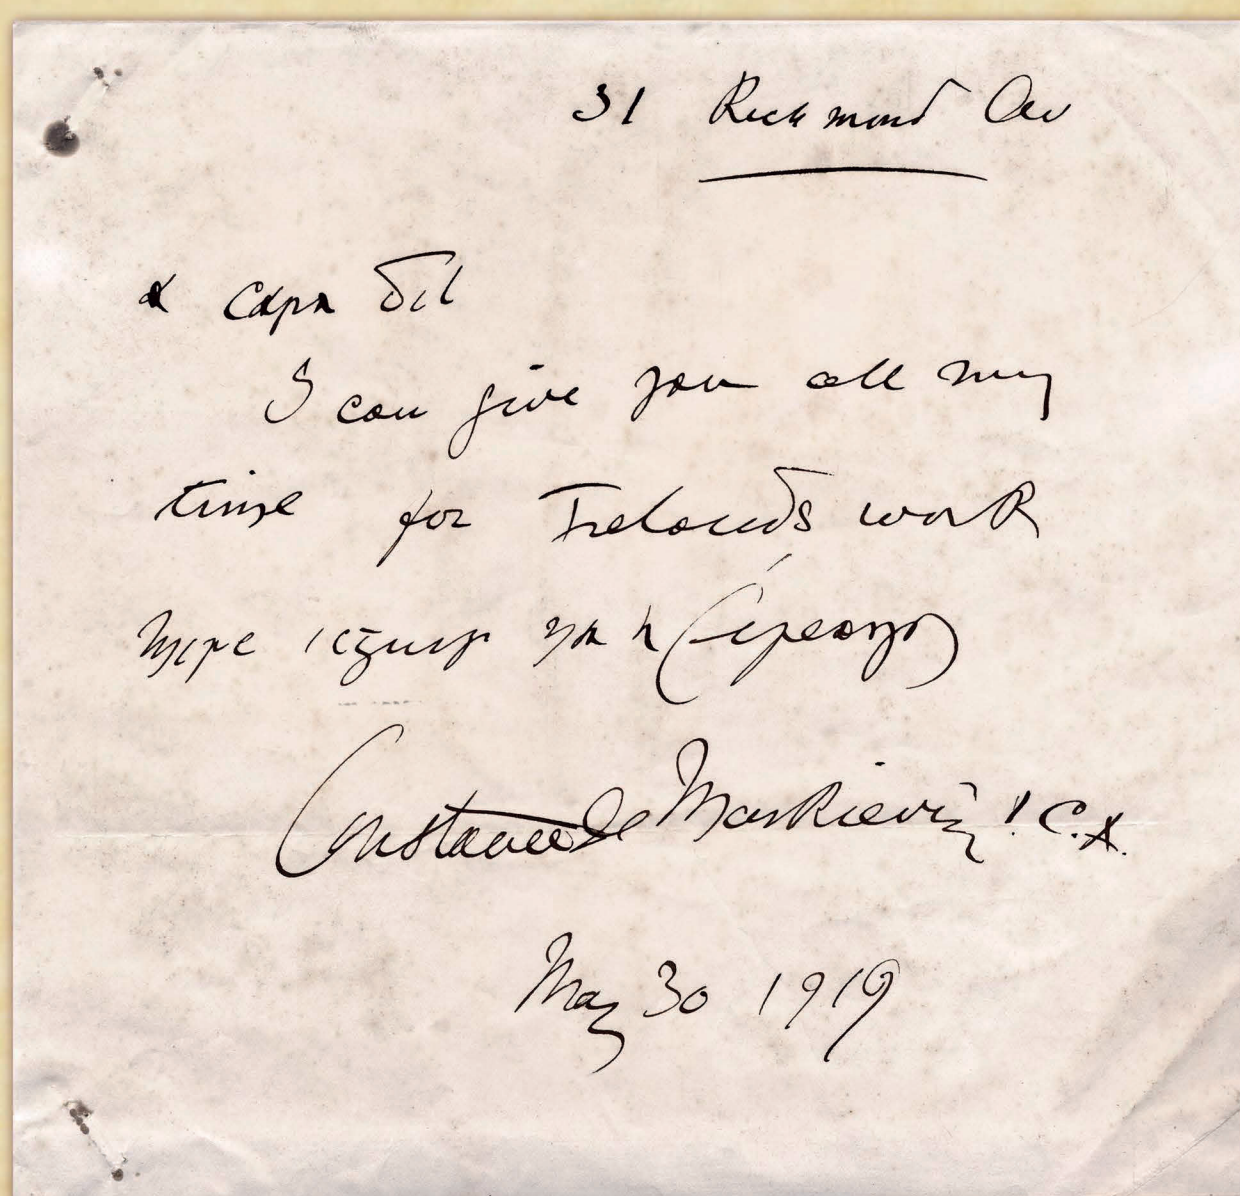 31 Richmond Av
a cara dil
I can give you all my
time for Ireland's work
Mise na h Éireann
Constance de Markievicz I.C.A.
May 30 1919